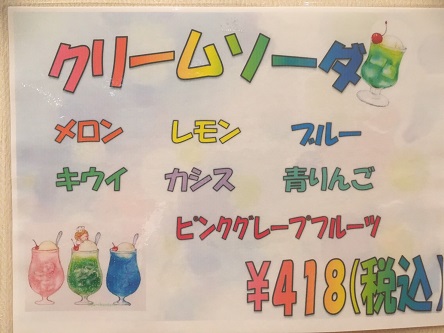 クリームソーダ
メロン レモン ブルー
キウイ カシス 青りんご
ピンクグレープフルーツ
¥418(税込)